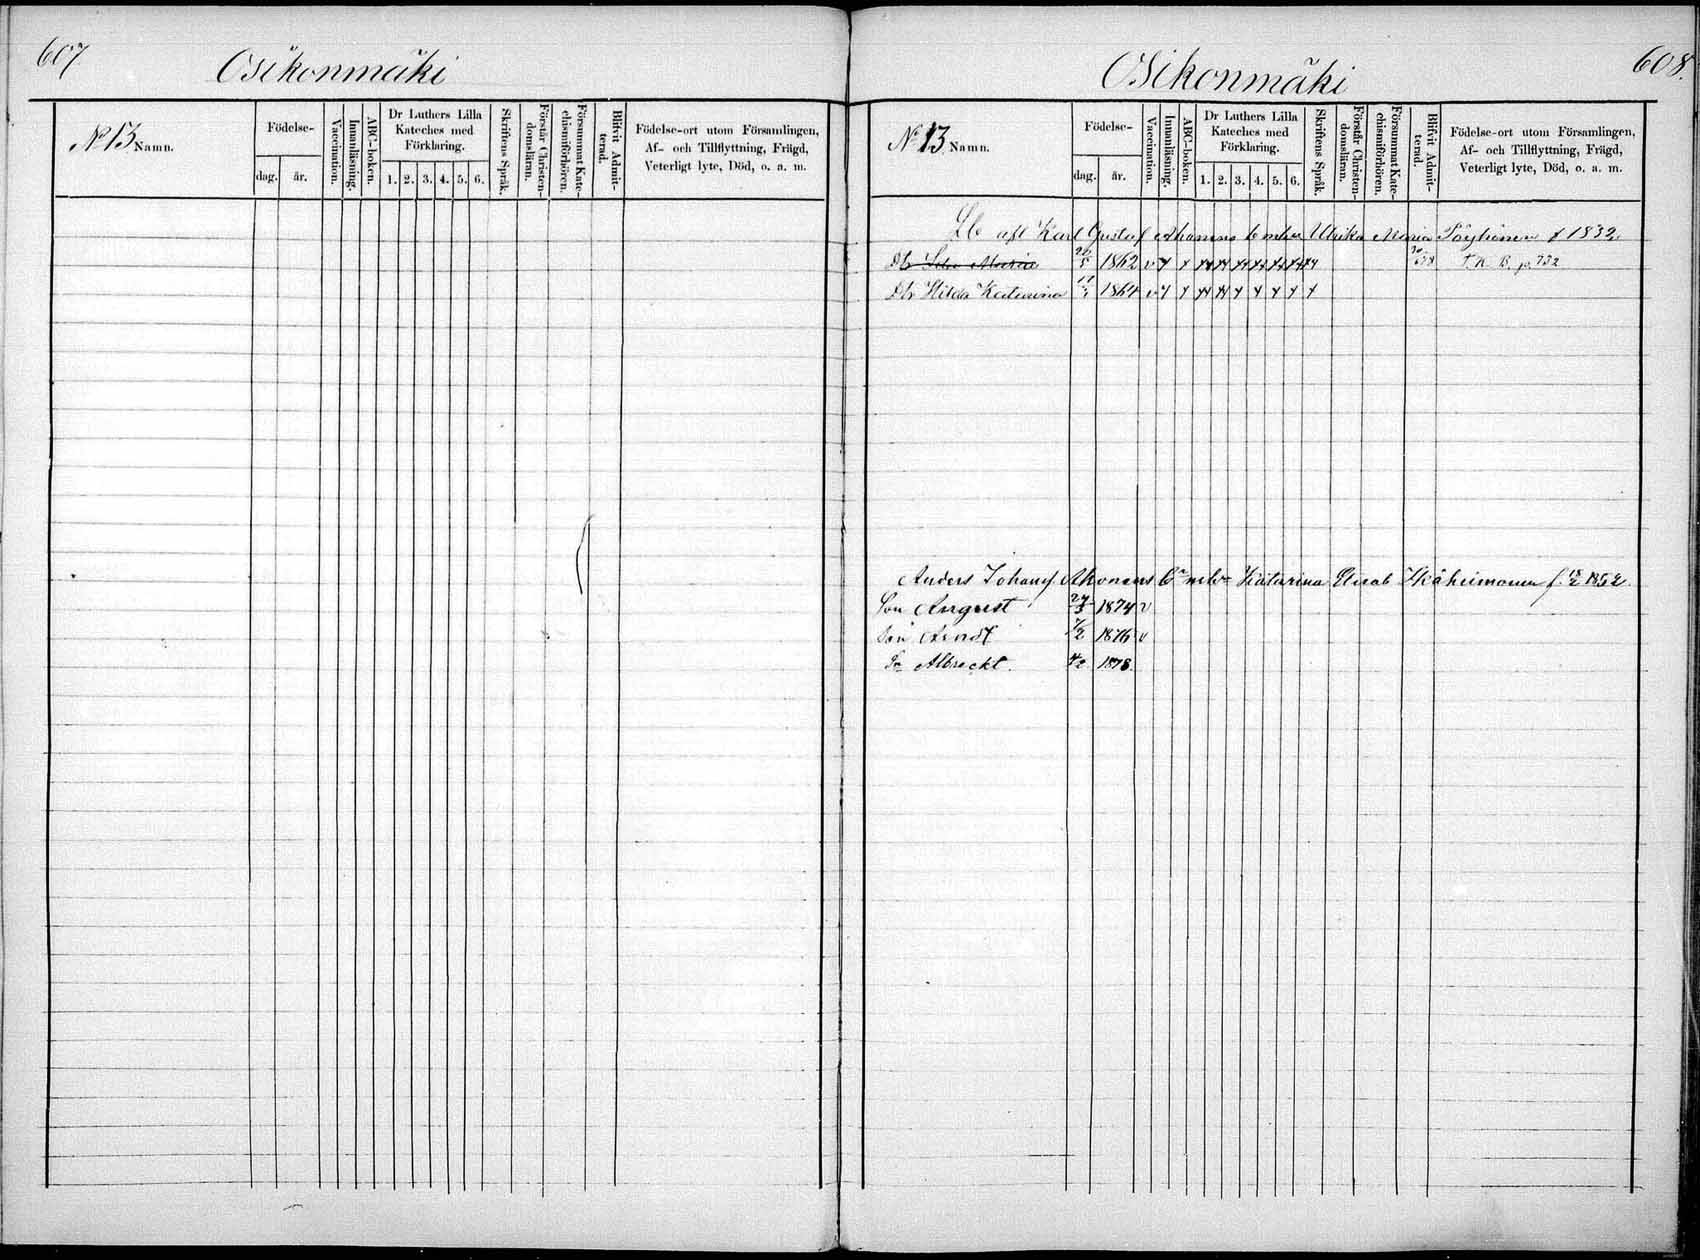 607
Osikonmäki
No 13 Namn.
Födelse-
dag.
år.
Vaccination.
Innanläsning.
ABC-boken.
Dr Luthers Lilla
Kateches med
Förklaring.
1. 2. 3. 4. 5. 6.
Skriftens Språk.
Förstår Christen-
domsläran.
Försummat Kate-
chismiförhören.
Blifvit Admit-
terad.
Födelse-ort utom Församlingen,
Af- och Tillflyttning, Frägd,
Veterligt lyte, Död, o. a. m.
Osikonmäki
608.
No 13 Namn.
Födelse-
dag.
år.
Vaccination.
Innanläsning.
ABC-boken.
Dr Luthers Lilla
Kateches med
Förklaring.
1. 2. 3. 4. 5. 6.
Skriftens Språk.
Förstår Christen-
domsläran.
Försummat Kate-
chismiförhören.
Blifvit Admit-
terad.
Födelse-ort utom Församlingen,
Af- och Tillflyttning, Frägd,
Veterligt lyte, Död, o. a. m.
Karl Gustaf Ahonens Ulrika Maria 1832
Maria 1862 v p. 732
Dtr Hilda Katarina 1864 v
Anders Johan Ahonens Katarina Elisab f. 18/2 1852
Son August 24/3 1874 v
Son Arndt 7/2 1876 v
Sn Albreckt. 4/2 1878.